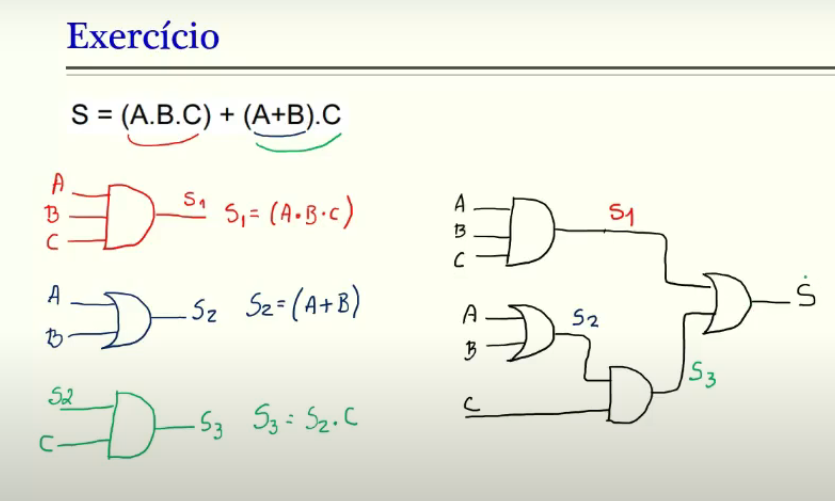 Exercício
S = (A.B.C) + (A+B).C
A
B
C
S1
S1 = (A.B.C)
A
B
S2
S2 = (A+B)
S2
C
S3
S3 = S2.C
A
B
C
S1
A
B
S2
C
S3
S